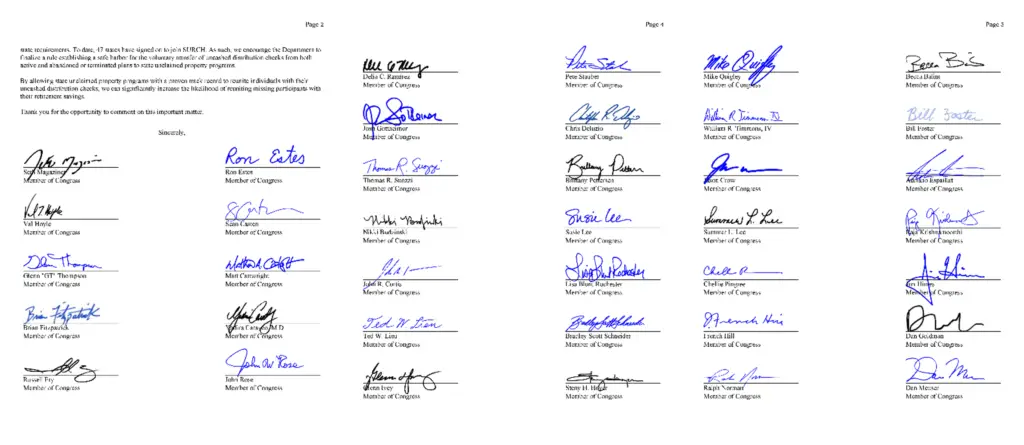 Page 2
Page 4
Page 3
state requirements. To date, 47 states have signed on to join SURCH. As such, we encourage the Department to
finalize a rule establishing a safe harbor for the voluntary transfer of uncashed distribution checks from both
active and abandoned or terminated plans to state unclaimed property programs.
By allowing state unclaimed property programs with a proven track record to reunite individuals with their
uncashed distribution checks, we can significantly increase the likelihood of reuniting missing participants with
their retirement savings.
Thank you for the opportunity to comment on this important matter.
Sincerely,
Seth Magaziner
Member of Congress
Ron Estes
Ron Estes
Member of Congress
Val Hoyle
Member of Congress
Sean Casten
Member of Congress
Glenn Thompson
Glenn "GT" Thompson
Member of Congress
Matthew Cartwright
Matt Cartwright
Member of Congress
Brian Fitzpatrick
Brian Fitzpatrick
Member of Congress
Yadira Caraveo, M.D.
Member of Congress
Russell Fry
Member of Congress
John W Rose
John Rose
Member of Congress
Delia C. Ramirez
Member of Congress
Josh Gottheimer
Member of Congress
Thomas R. Suozzi
Thomas R. Suozzi
Member of Congress
Nikki Budzinski
Nikki Budzinski
Member of Congress
John R. Curtis
Member of Congress
Ted W. Lieu
Ted W. Lieu
Member of Congress
Glenn Ivey
Glenn Ivey
Member of Congress
Pete Stauber
Member of Congress
Mike Quigley
Mike Quigley
Member of Congress
Chris Deluzio
Member of Congress
William R. Timmons IV
William R. Timmons, IV
Member of Congress
Brittany Pettersen
Member of Congress
Jason Crow
Member of Congress
Susie Lee
Susie Lee
Member of Congress
Summer L. Lee
Summer L. Lee
Member of Congress
Lisa Blunt Rochester
Lisa Blunt Rochester
Member of Congress
Chellie Pingree
Member of Congress
Bradley Scott Schneider
Bradley Scott Schneider
Member of Congress
J. French Hill
French Hill
Member of Congress
Steny H. Hoyer
Member of Congress
Ralph Norman
Member of Congress
Becca Balint
Member of Congress
Bill Foster
Bill Foster
Member of Congress
Adriano Espaillat
Member of Congress
Raja Krishnamoorthi
Member of Congress
Jim Himes
Jim Himes
Member of Congress
Dan Goldman
Member of Congress
Dan Meuser
Member of Congress